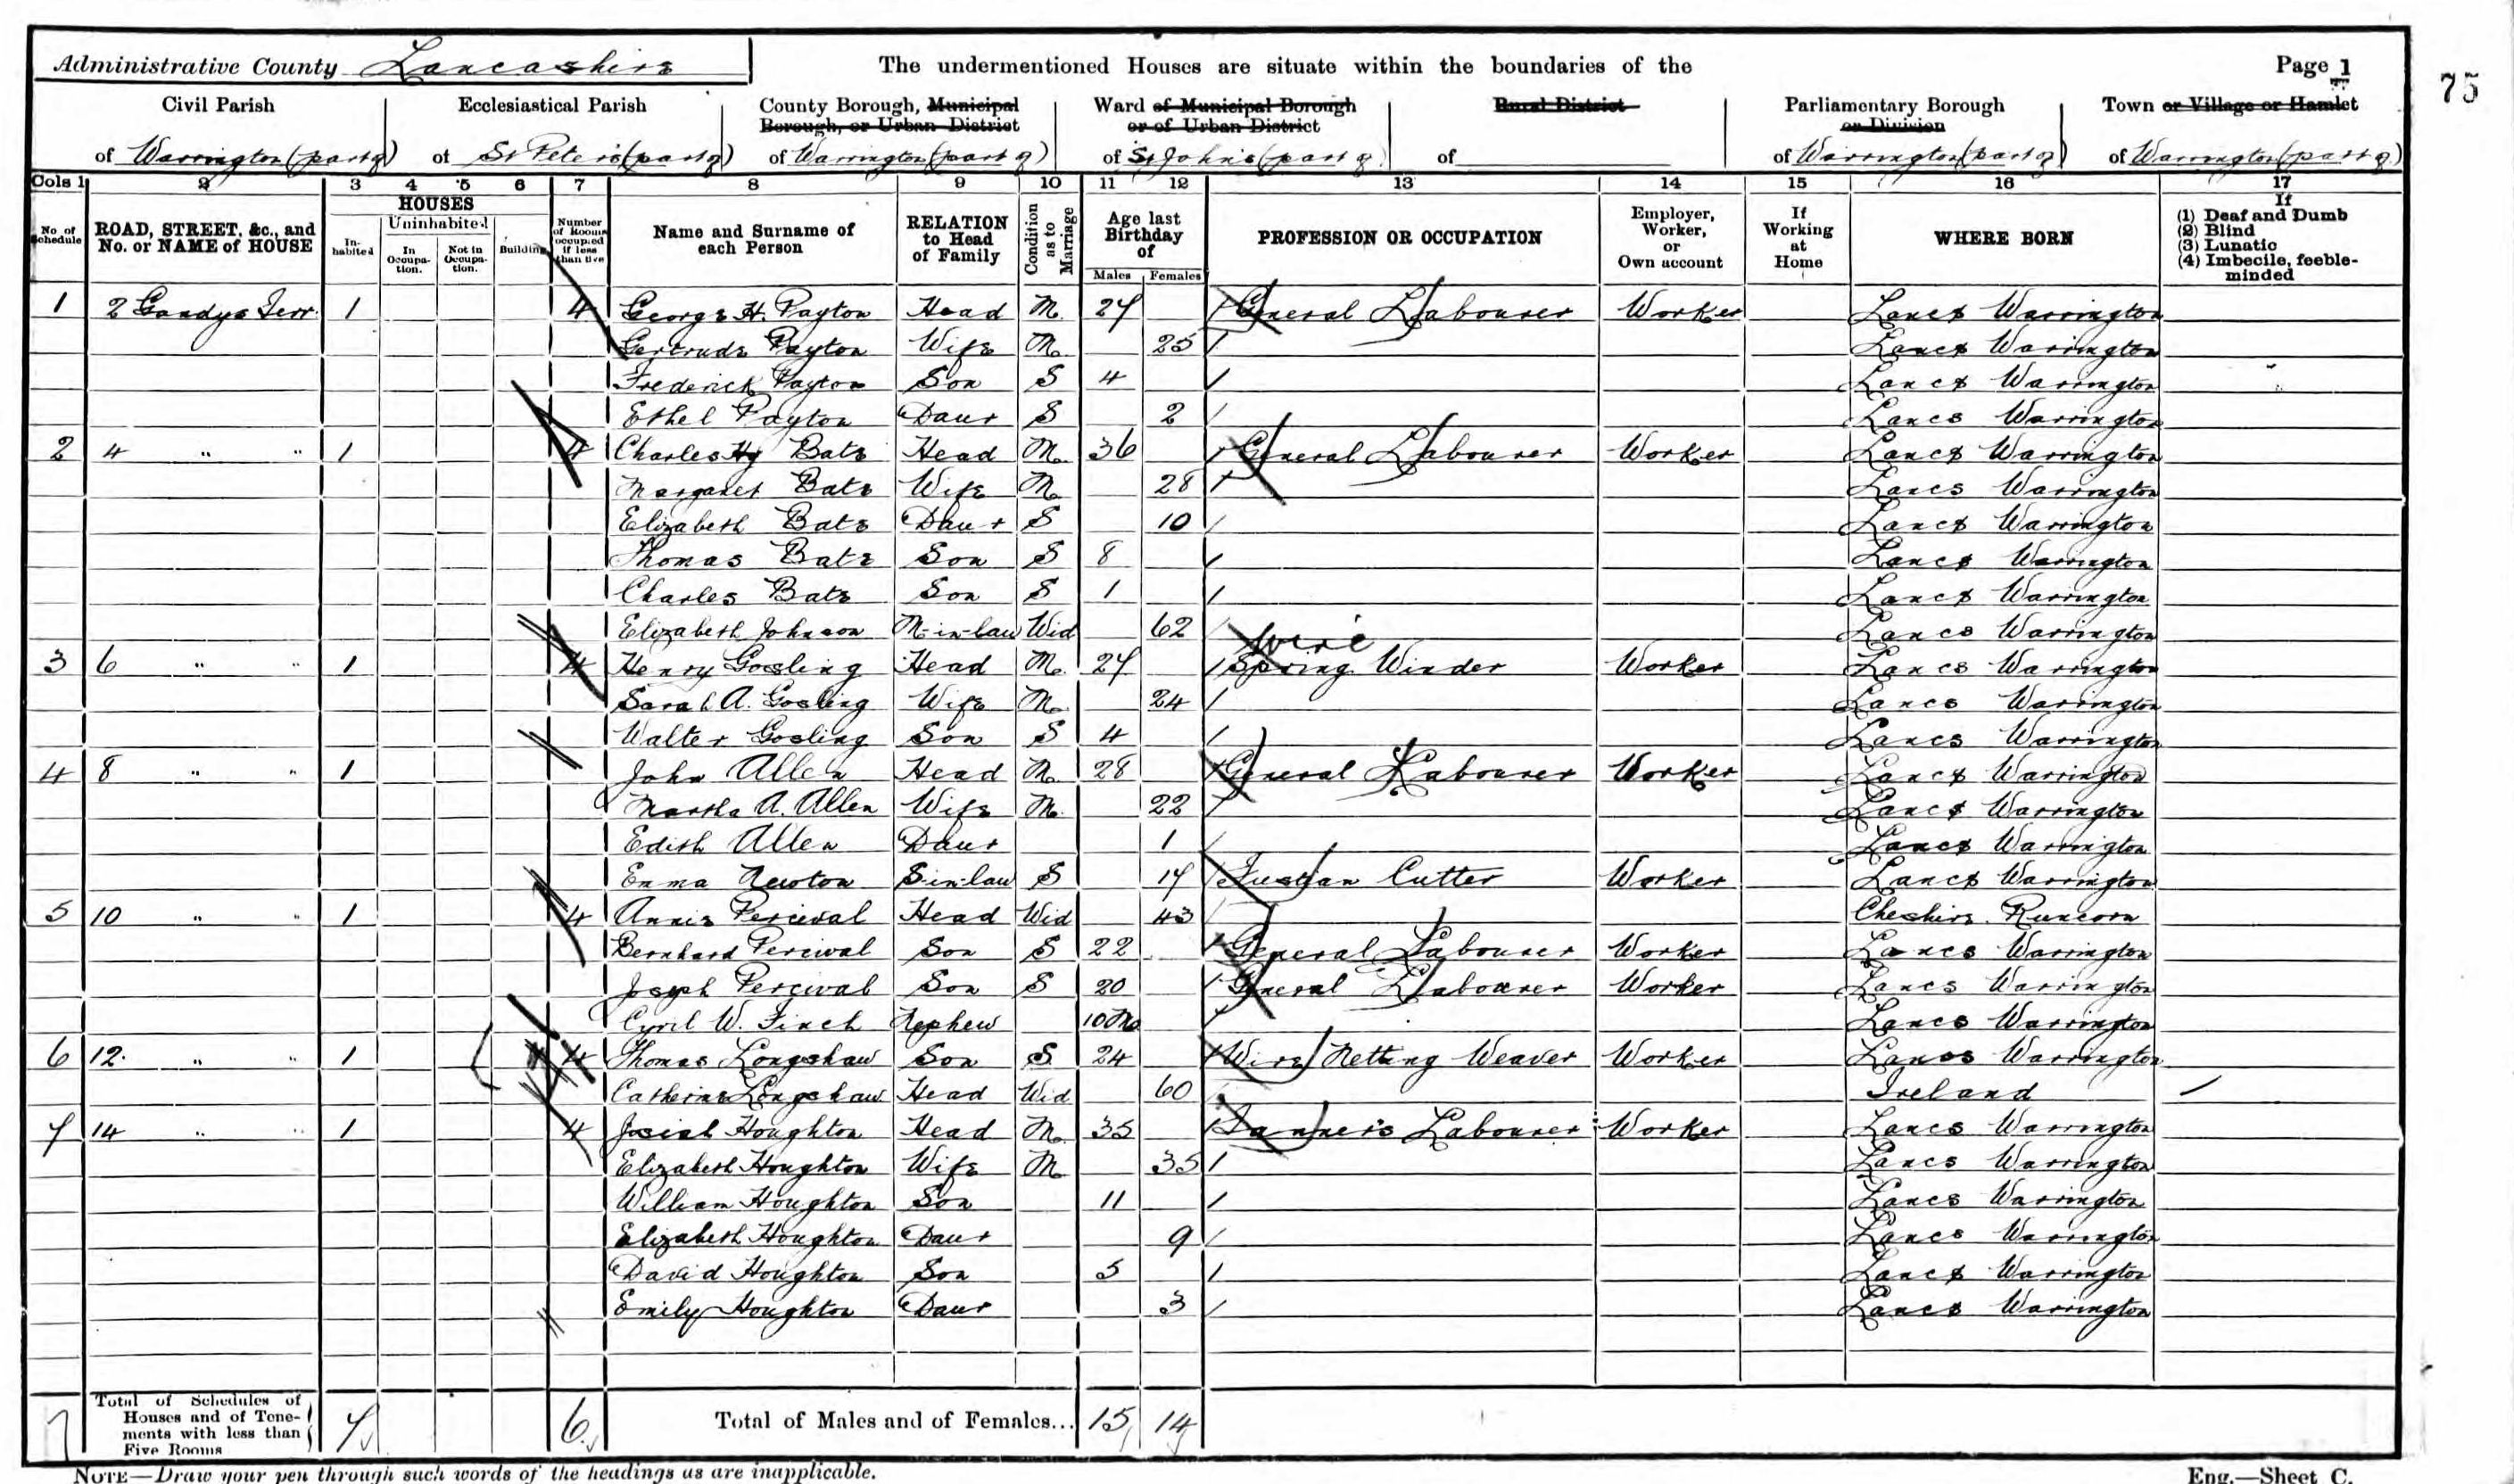 Administrative County Lancashire The undermentioned Houses are situate within the boundaries of the Page 1
75
Civil Parish Ecclesiastical Parish County Borough, Municipal Borough, or Urban District Ward of Municipal Borough or of Urban District Rural District Parliamentary Borough or Division Town or Village or Hamlet
of Warrington (part of) of St Peter's (part of) of Warrington (part of) of St John's (part of) of of Warrington (part of) of Warrington (part of)
Cols 1 2 3 4 5 6 7 8 9 10 11 12 13 14 15 16 17
No. of Schedule ROAD, STREET, &c., and No. or NAME of HOUSE HOUSES In-habited Uninhabited In Occupa-tion. Not in Occupa-tion. Building Number of Rooms occupied if less than five Name and Surname of each Person RELATION to Head of Family Condition as to Marriage Age last Birthday of Males Females PROFESSION OR OCCUPATION Employer, Worker, or Own account If Working at Home WHERE BORN If (1) Deaf and Dumb (2) Blind (3) Lunatic (4) Imbecile, feeble-minded
1 2 Gandys Terr. 1 4 George H. Payton Head M. 27 General Labourer Worker Lancs Warrington
Gertrude Payton Wife M. 25 Lancs Warrington
Frederick Payton Son S 4 Lancs Warrington
Ethel Payton Daur S 2 Lancs Warrington
2 4 " " 1 4 Charles Hy Bate Head M. 36 General Labourer Worker Lancs Warrington
Margaret Bate Wife M. 28 Lancs Warrington
Elizabeth Bate Daur S 10 Lancs Warrington
Thomas Bate Son S 8 Lancs Warrington
Charles Bate Son S 1 Lancs Warrington
Elizabeth Johnson M-in-law Wid 62 Lancs Warrington
wire
3 6 " " 1 4 Henry Gosling Head M. 27 Spring Winder Worker Lancs Warrington
Sarah A. Gosling Wife M. 24 Lancs Warrington
Walter Gosling Son S 4 Lancs Warrington
4 8 " " 1 John Allen Head M. 28 General Labourer Worker Lancs Warrington
Martha A. Allen Wife M. 22 Lancs Warrington
Edith Allen Daur 1 Lancs Warrington
Emma Newton S-in-law S 17 Fustian Cutter Worker Lancs Warrington
5 10 " " 1 4 Annie Percival Head Wid 43 Cheshire. Runcorn
Bernhard Percival Son S 22 General Labourer Worker Lancs Warrington
Joseph Percival Son S 20 General Labourer Worker Lancs Warrington
Cyril W. Finch Nephew 10 Mo Lancs Warrington
6 12. " " 1 4 Thomas Longshaw Son S 24 Wire Netting Weaver Worker Lancs Warrington
Catherine Longshaw Head Wid 60 Ireland
7 14 " " 1 4 Josiah Houghton Head M. 35 Tanner's Labourer Worker Lancs Warrington
Elizabeth Houghton Wife M 35 Lancs Warrington
William Houghton Son 11 Lancs Warrington
Elizabeth Houghton Daur 9 Lancs Warrington
David Houghton Son 5 Lancs Warrington
Emily Houghton Daur 3 Lancs Warrington
7 Total of Schedules of Houses and of Tene-ments with less than Five Rooms 7 6 Total of Males and of Females... 15 14
NOTE—Draw your pen through such words of the headings as are inapplicable. Eng.—Sheet C.